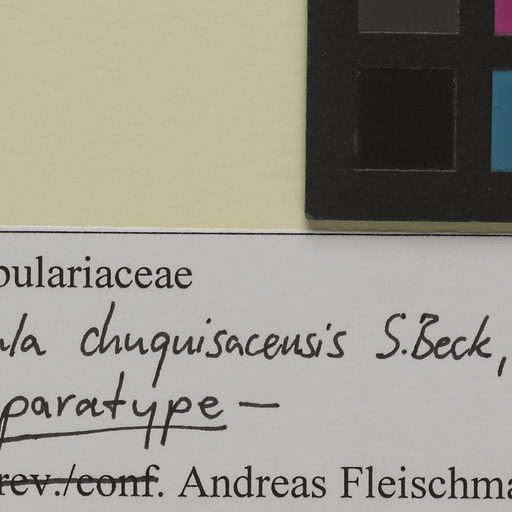 bulariaceae
ula chuquisacensis S.Beck,
paratype —
rev./conf. Andreas Fleischma